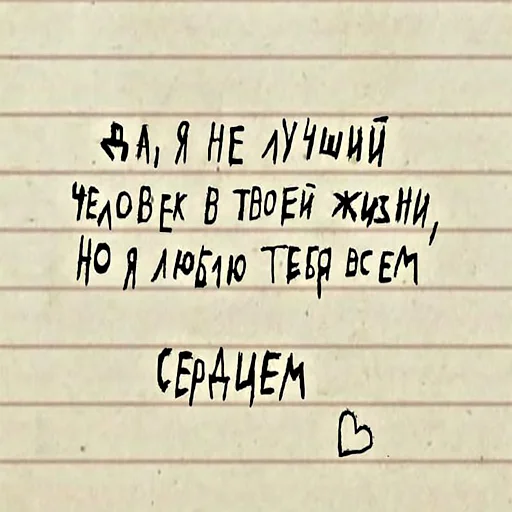 ДА, Я НЕ ЛУЧШИЙ
ЧЕЛОВЕК В ТВОЕЙ ЖИЗНИ,
НО Я ЛЮБЛЮ ТЕБЯ ВСЕМ
СЕРДЦЕМ